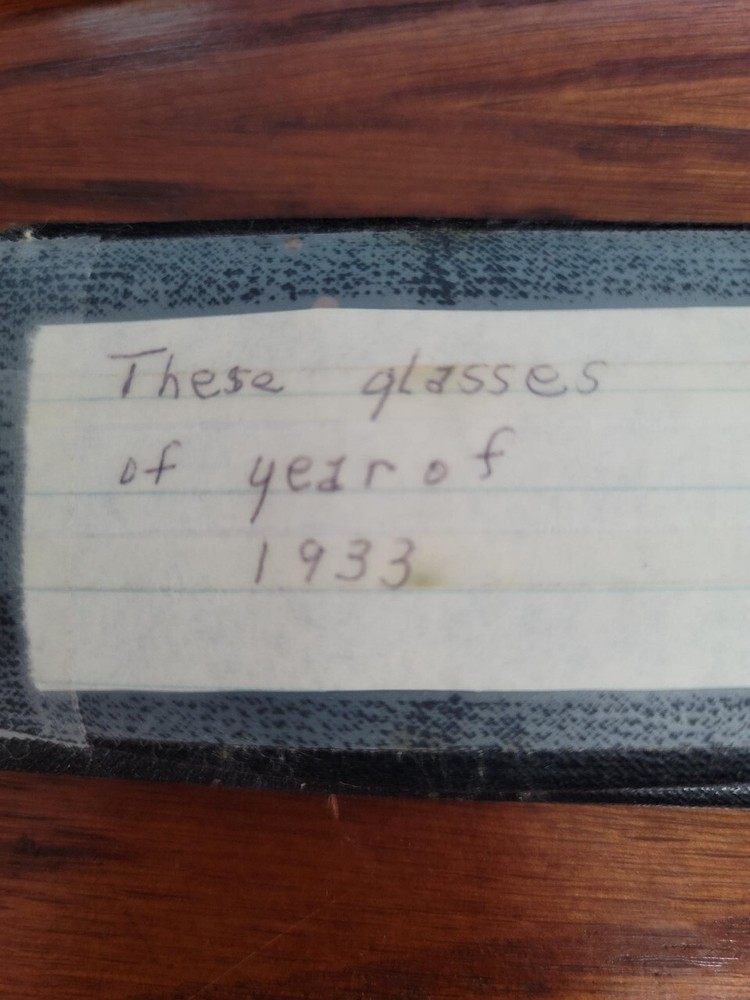 These glasses
of year of
1933